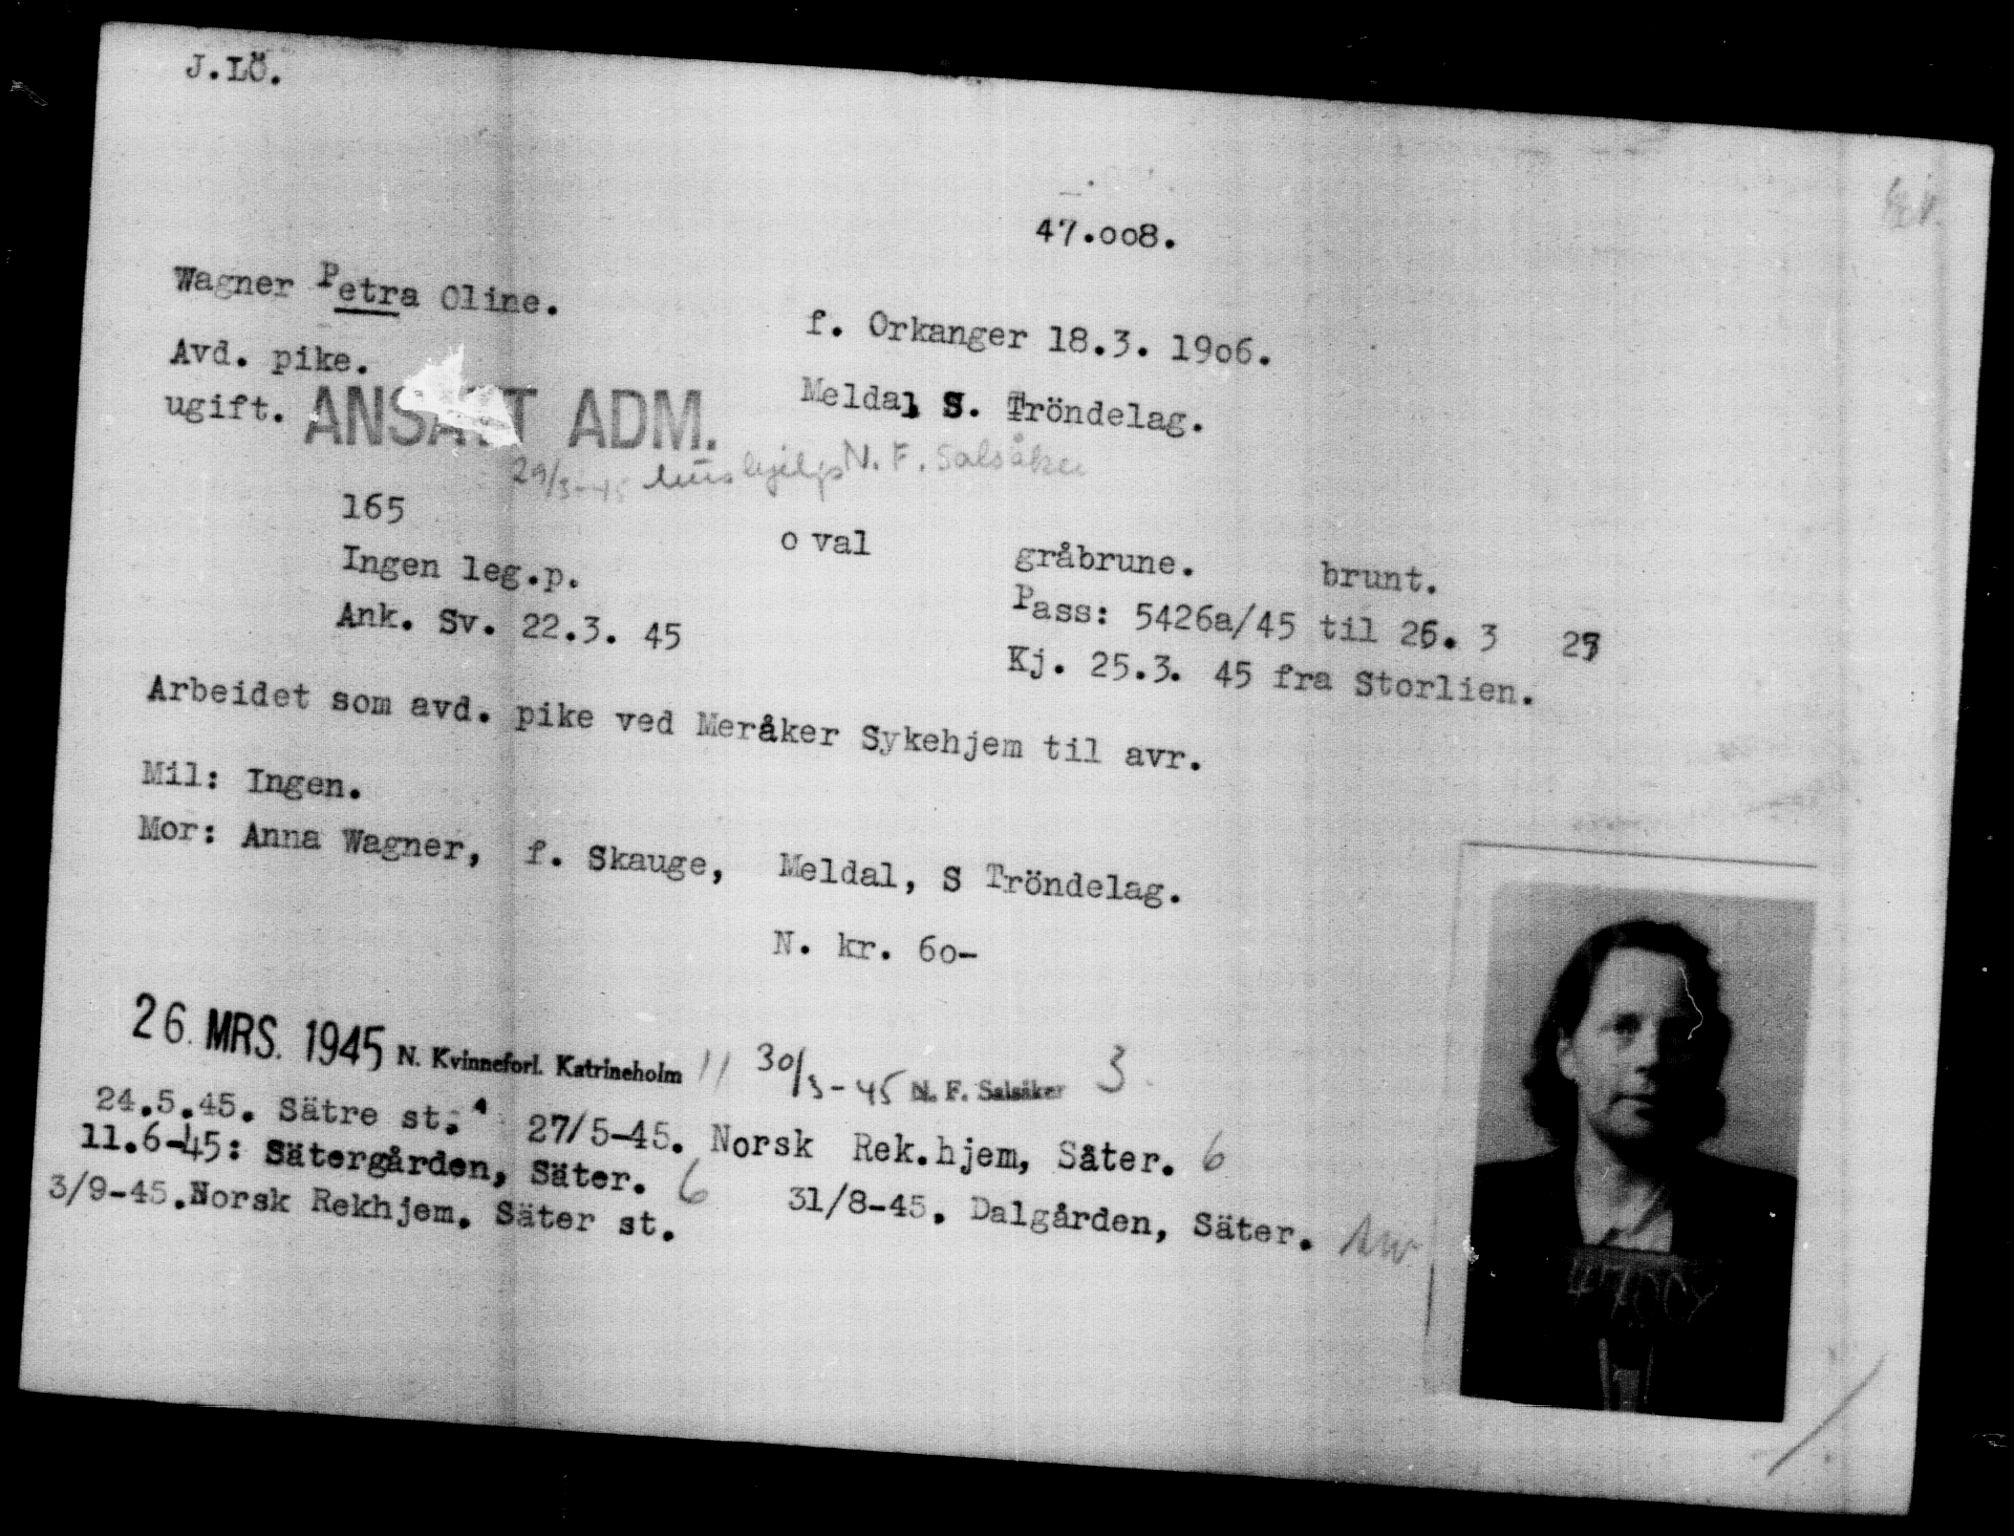 J.LÖ.
47.008.
Wagner Petra Oline.
f. Orkanger 18.3. 1906.
Avd. pike.
Meldal S. Tröndelag.
ugift.
ANSATT ADM.
29/3-45 hushjelp N. F. Salsåker
165
oval
gråbrune. brunt.
Ingen leg.p.
Pass: 5426a/45 til 26. 3
Ank. Sv. 22.3. 45
Kj. 25.3. 45 fra Storlien.
Arbeidet som avd. pike ved Meråker Sykehjem til avr.
Mil: Ingen.
Mor: Anna Wagner, f. Skauge, Meldal, S Tröndelag.
N. kr. 60-
26. MRS. 1945 N. Kvinneforl. Katrineholm 11 30/3-45 N. F. Salsåker 3
24.5.45. Sätre st. 27/5-45. Norsk Rek.hjem, Säter. 6
11.6-45: Sätergården, Säter. 6 31/8-45. Dalgården, Säter.
3/9-45. Norsk Rekhjem. Säter st.
47008